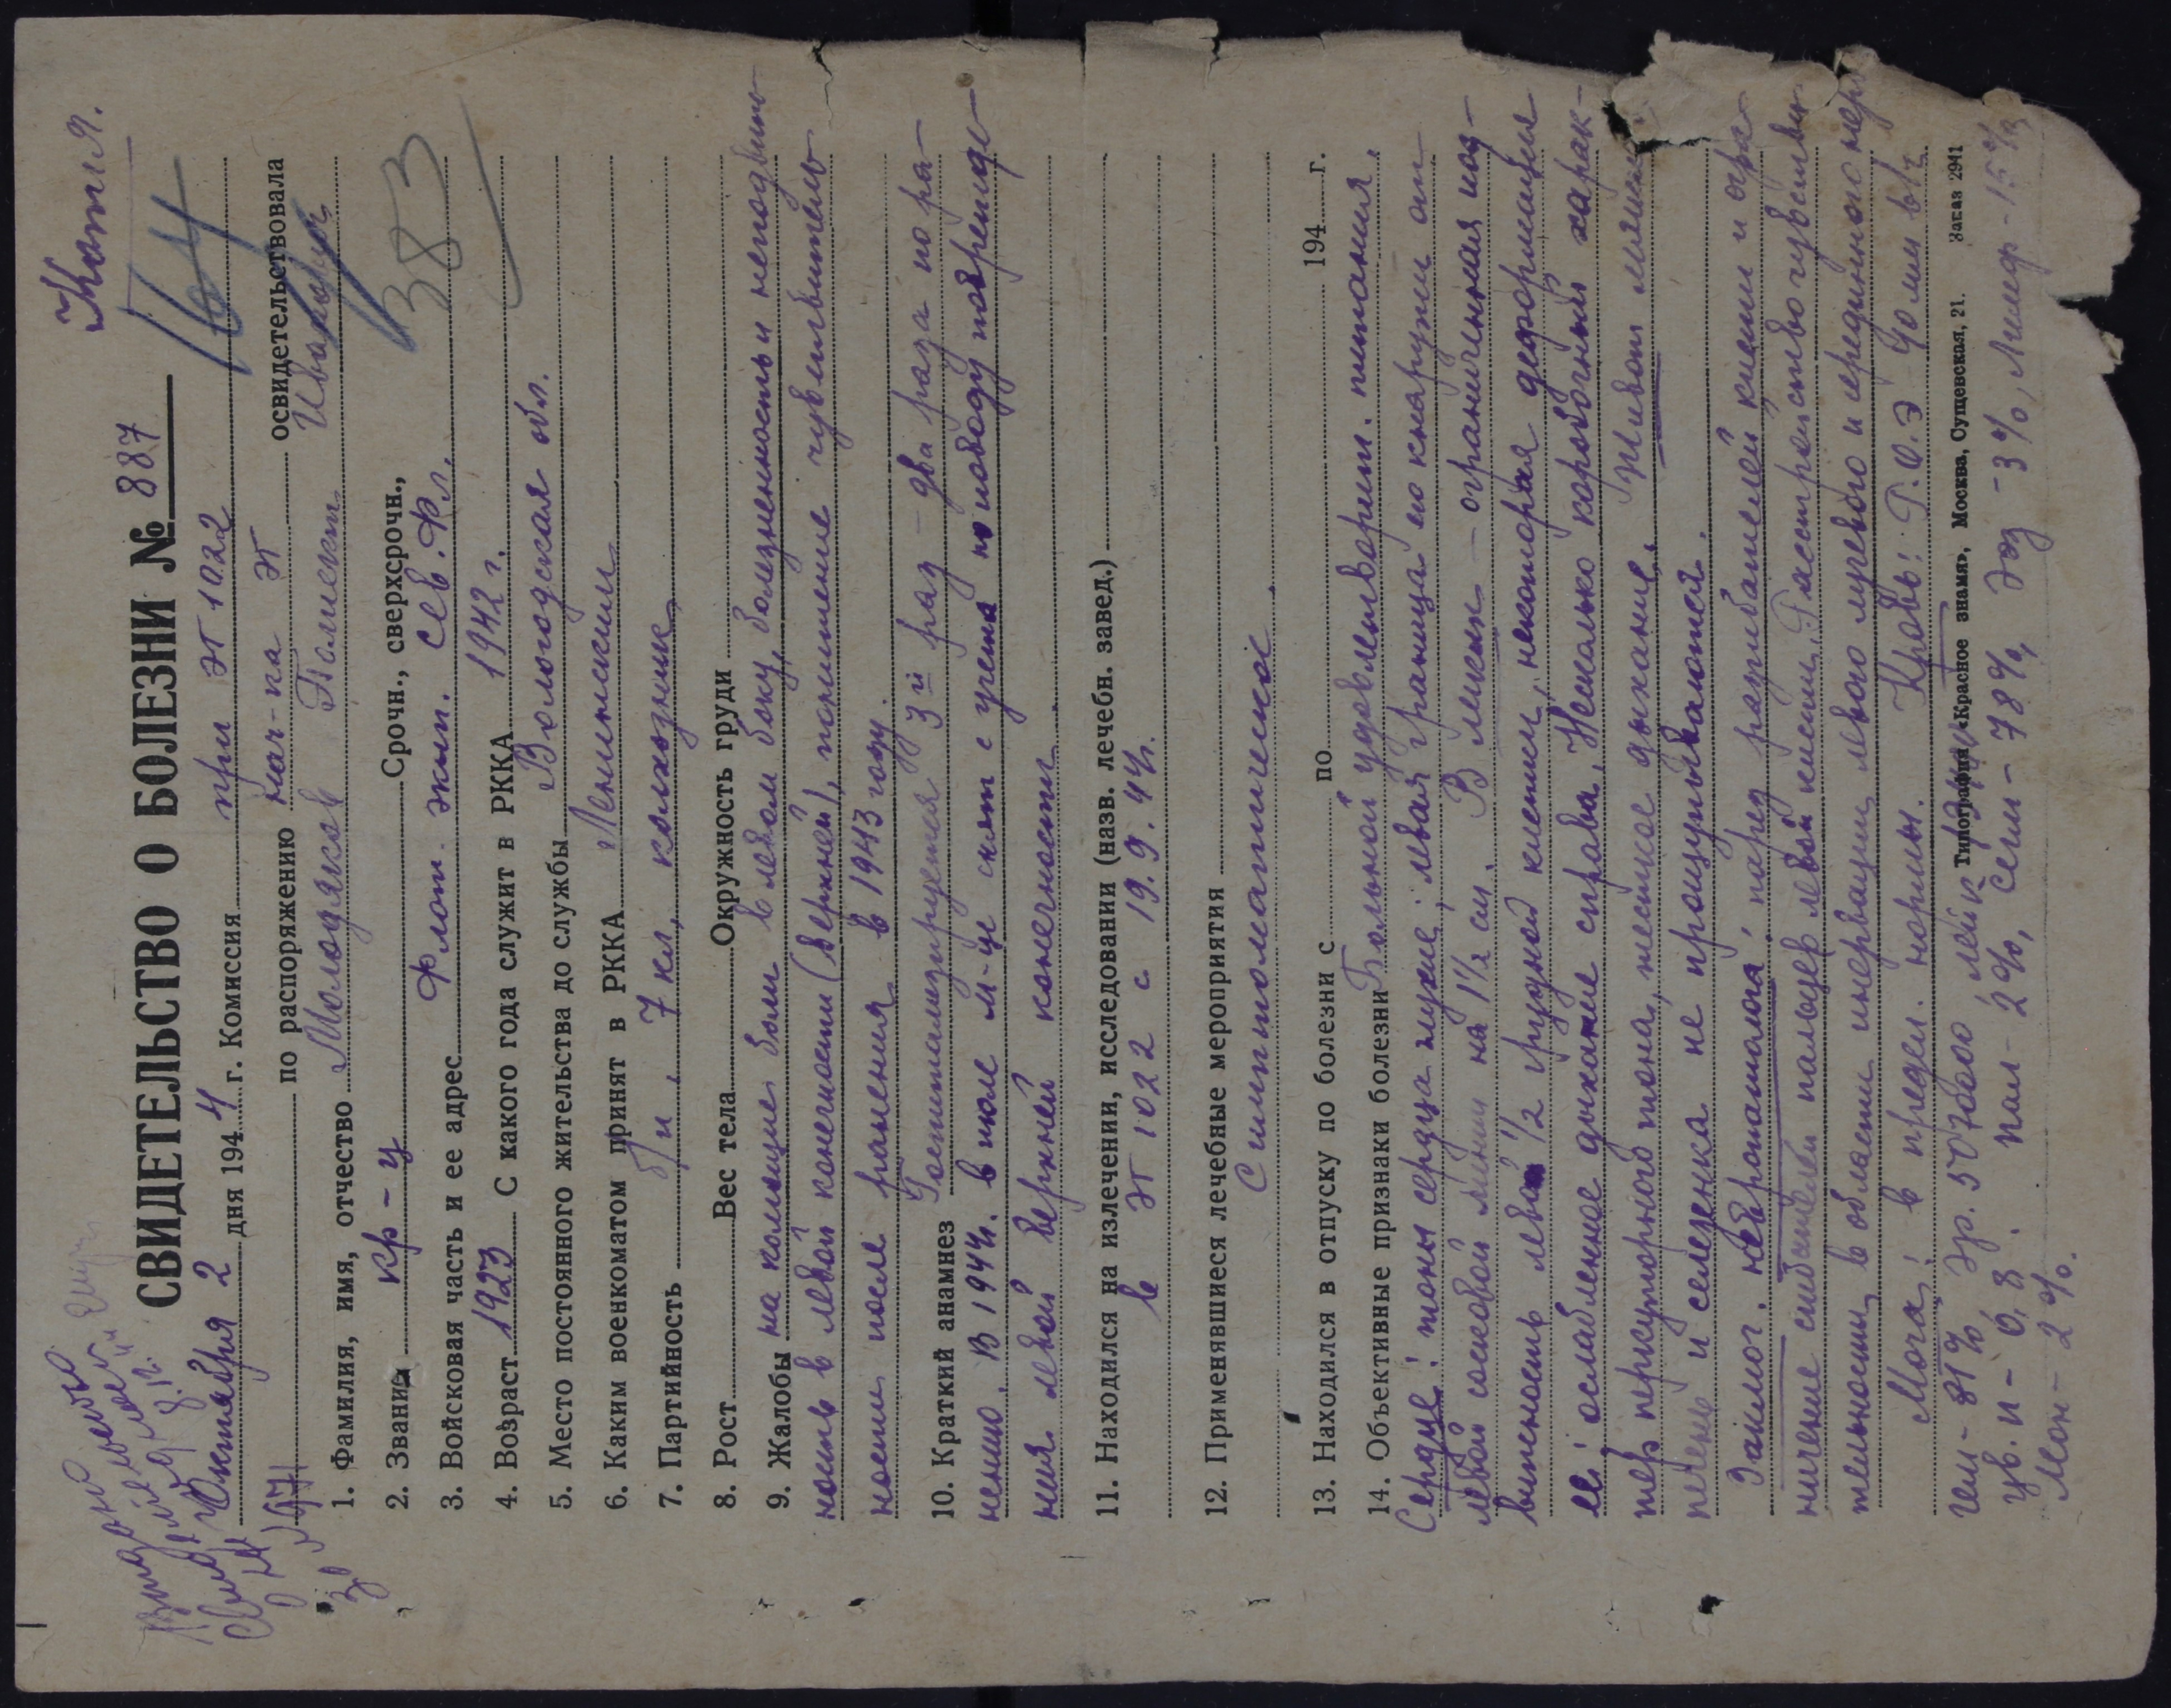 Копия.
164
383
СВИДЕТЕЛЬСТВО О БОЛЕЗНИ № 887
Октября 2 дня 1944 г. Комиссия при ЭГ 1022
по распоряжению нач-ка ЭГ освидетельствовала
1. Фамилия, имя, отчество Молодяков Полиект Иванович
2. Звание кр-ц Срочн., сверхсрочн.,
3. Войсковая часть и ее адрес Флот. экип. Сев. Фл.
4. Возраст 1923 С какого года служит в РККА 1942 г.
5. Место постоянного жительства до службы Вологодская обл.
6. Каким военкоматом принят в РККА Ленинским
7. Партийность б/п, 7 кл, колхозник
8. Рост Вес тела Окружность груди
9. Жалобы на колющие боли в левом боку, болезненность и неподвиж-
ность в левой конечности (верхней), понижение чувствитель-
ности после ранения в 1943 году.
10. Краткий анамнез Госпитализируется 3й раз – два раза по ра-
нению. В 1944г. в июле м-це снят с учета по поводу поврежде-
ния левой верхней конечности.
11. Находился на излечении, исследовании (назв. лечебн. завед.)
в ЭГ 1022 с 19.9.44г.
12. Применявшиеся лечебные мероприятия
Симптоматическое.
13. Находился в отпуску по болезни с по 194 г.
14. Объективные признаки болезни Больной удовлетворит. питания.
Сердце: тоны сердца глухие, левая граница его кнаружи от
левой сосковой линии на 1½ см. В легких – ограниченная под-
вижность левой ½ грудной клетки, некоторая деформация
ее; ослабленное дыхание справа. Несколько коробочный харак-
тер перкуторного тона, жесткое дыхание. Живот мягкий
печень и селезенка не прощупываются.
Заключ. невропатолога: парез разгибателей кисти и огра-
ничение сгибателей пальцев левой кисти. Расстройство чувстви-
тельности в области инервации левого лучевого и срединного нер
Моча: в предел. нормы. Кровь: Р.О.Э 40 мм в 1ч
гем – 81% Эр. 5070000 лейк
Типография «Красное знамя», Москва, Сущевская, 21. Заказ 2941
цв. п – 0,8. пал – 2%, сегм – 78%, Эоз – 3%, Лимф – 15%
Мон – 2%.